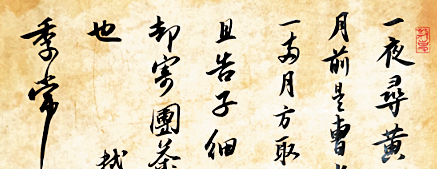 一夜尋黃
月前是曹
一兩月方取
且告子細
却寄團茶
也
季常